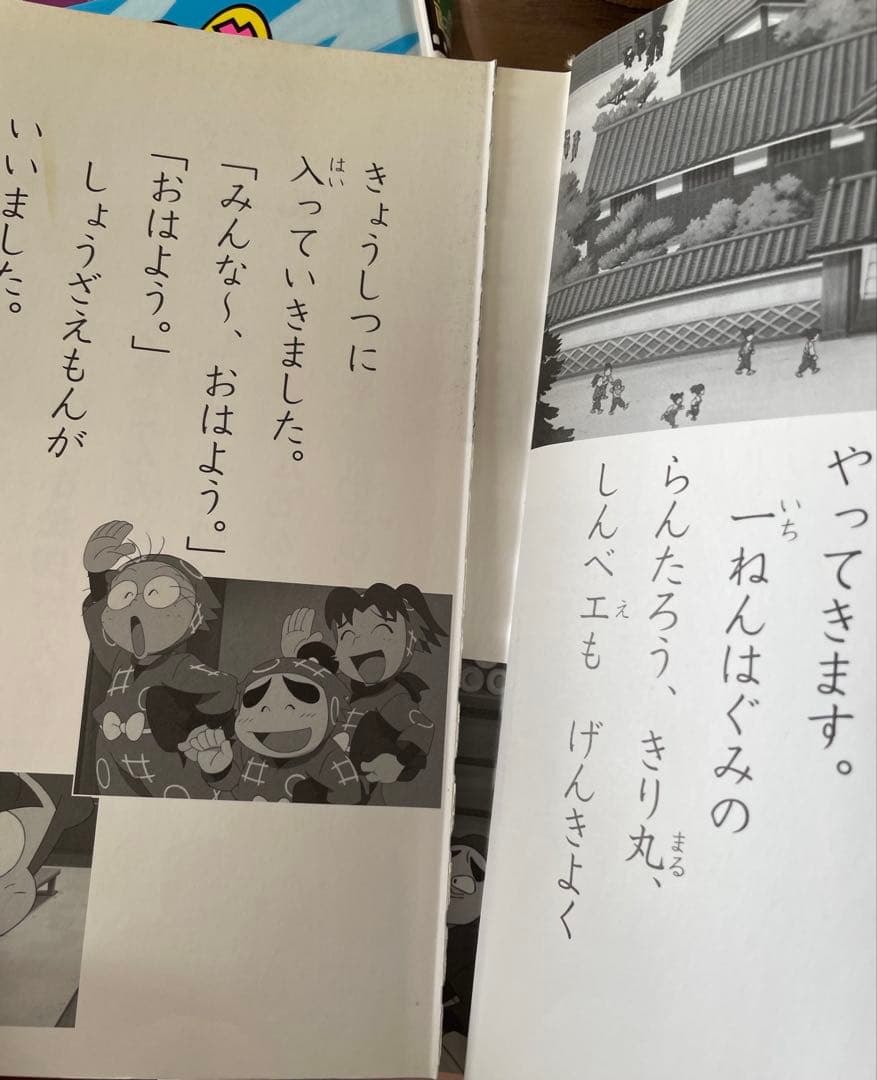 やってきます。
一ねんはぐみの
いち
らんたろう、きり丸、
まる
しんべエも　げんきよく
え
きょうしつに
入っていきました。
はい
「みんな～、おはよう。」
「おはよう。」
しょうざえもんが
いいました。